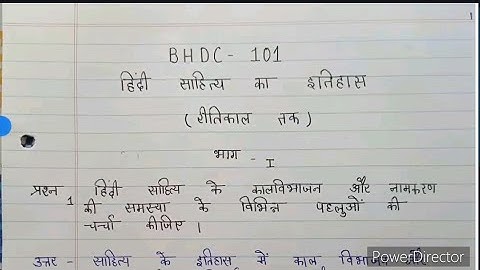 1
BHDC - 101
हिंदी साहित्य का इतिहास
( रीतिकाल तक )
भाग - I
प्रश्न 1 हिंदी साहित्य के कालविभाजन और नामकरण
की समस्या के विभिन्न पहलुओं की
चर्चा कीजिए ।
उत्तर - साहित्य के इतिहास में काल विभाजन और
PowerDirector